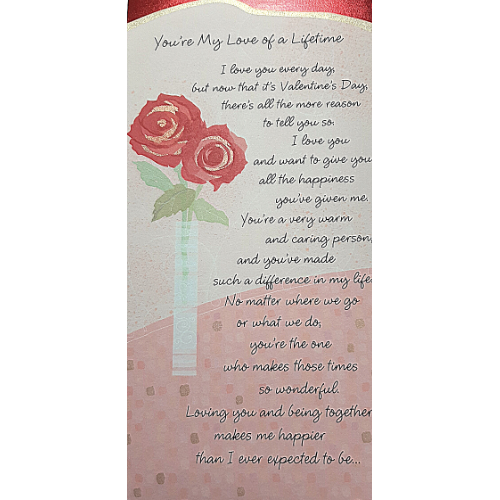 You're My Love of a Lifetime
I love you every day,
but now that it's Valentine's Day,
there's all the more reason
to tell you so.
I love you
and want to give you
all the happiness
you've given me.
You're a very warm
and caring person,
and you've made
such a difference in my life.
No matter where we go
or what we do,
you're the one
who makes those times
so wonderful.
Loving you and being together
makes me happier
than I ever expected to be...